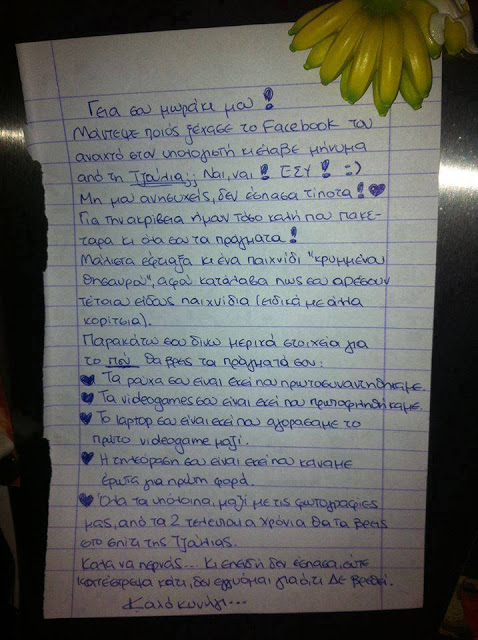 Γεια σου μωράκι μου!
Μάντεψε ποιός ξέχασε το Facebook του
ανοιχτό στον υπολογιστή κι έλαβε μήνυμα
από τη Τζούλια;; Ναι, ναι! ΕΣΥ! :)
Μη μου ανησυχείς, δεν έσπασα τίποτα! ♥
Για την ακρίβεια ήμουν τόσο καλή που πακέ-
ταρα κι όλα σου τα πράγματα!
Μάλιστα έφτιαξα κι ένα παιχνίδι "κρυμμένου
θησαυρού", αφού κατάλαβα πως σου αρέσουν
τέτοιου είδους παιχνίδια (ειδικά με άλλα
κορίτσια).
Παρακάτω σου δίνω μερικά στοιχεία για
το πού θα βρεις τα πράγματά σου:
♥ Τα ρούχα σου είναι εκεί που πρωτοσυναντηθήκαμε.
♥ Τα videogames σου είναι εκεί που πρωτοφιληθήκαμε.
♥ Το laptop σου είναι εκεί που αγοράσαμε το
πρώτο videogame μαζί.
♥ Η τηλεόραση σου είναι εκεί που κάναμε
έρωτα για πρώτη φορά.
♥ Όλα τα υπόλοιπα, μαζί με τις φωτογραφίες
μας, από τα 2 τελευταία χρόνια θα τα βρεις
στο σπίτι της Τζούλιας.
Καλά να περνάς... Κι επειδή δεν έσπασα, ούτε
κατέστρεψα κάτι, δεν εγγυόμαι για ό,τι δε βρεθεί.
Καλό κυνήγι...